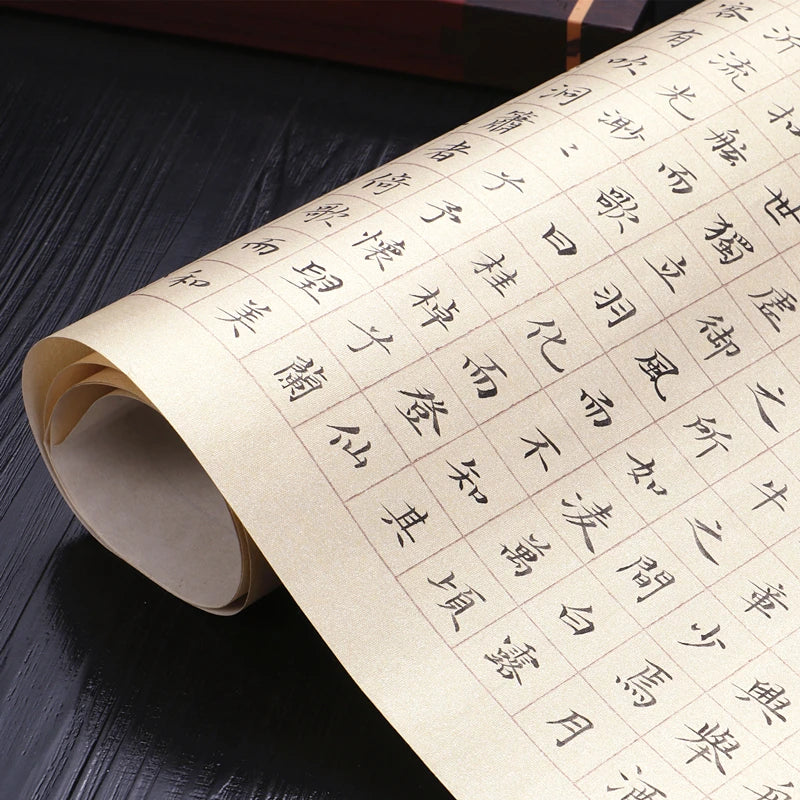 興舉酒
章少焉月
牛之間白露
之所如凌萬頃
虛御風而不知其
世獨立羽化而登仙
扣舷而歌曰桂棹兮蘭
沂流光渺ミ兮予懷望美
客有吹洞簫者倚歌而和